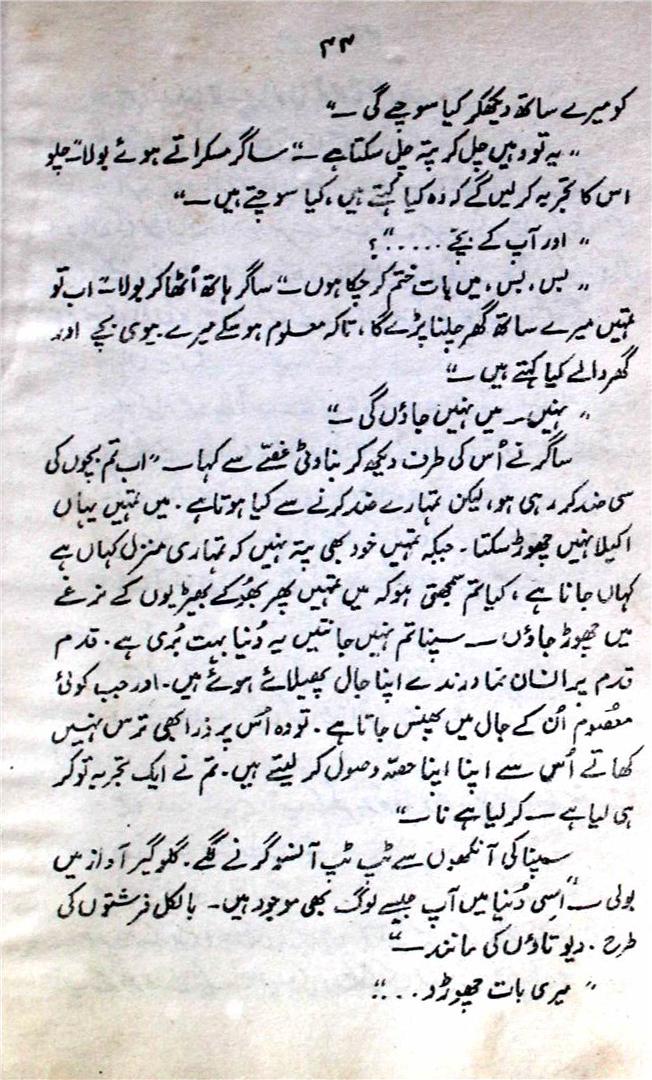 ۴۴
کو میرے ساتھ دیکھکر کیا سوچے گی ۔"
"یہ تو وہیں چل کر پتہ چل سکتا ہے ۔" ساگر مسکراتے ہوئے بولا" چلو
اس کا تجربہ کر لیں گے کہ وہ کیا کہتے ہیں، کیا سوچتے ہیں ۔"
"اور آپ کے بچے ....."؟
"بس، بس، میں بات ختم کر چکا ہوں ۔" ساگر ہاتھ اُٹھا کر بولا" اب تو
تمہیں میرے ساتھ گھر چلنا پڑے گا، تاکہ معلوم ہو سکے میرے بیوی بچے اور
گھر والے کیا کہتے ہیں ۔"
"نہیں ۔ میں نہیں جاؤں گی ۔"
ساگر نے اُس کی طرف دیکھ کر بناوٹی غصّے سے کہا ۔ "اب تم بچوں کی
سی ضد کر رہی ہو، لیکن تمہارے ضد کرنے سے کیا ہوتا ہے. میں تمہیں یہاں
اکیلا نہیں چھوڑ سکتا ۔ جبکہ تمہیں خود بھی پتہ نہیں کہ تمہاری منزل کہاں ہے
کہاں جانا ہے، کیا تم سمجھتی ہو کہ میں تمہیں پھر بھُوکے بھیڑیوں کے نرغے
میں چھوڑ جاؤں ۔ سپنا تم نہیں جانتیں یہ دُنیا بہت بُری ہے. قدم
قدم پر انسان نما درندے اپنا جال پھیلائے ہوئے ہیں ۔ اور جب کوئی
معصُوم اُن کے جال میں پھنس جاتا ہے. تو وہ اُس پر ذرا بھی ترس نہیں
کھاتے اُس سے اپنا اپنا حصّہ وصول کر لیتے ہیں. تم نے ایک تجربہ تو کر
ہی لیا ہے ۔ کر لیا ہے نا ۔"
سپنا کی آنکھوں سے ٹپ ٹپ آنسو گرنے لگے. گلوگیر آواز میں
بولی ۔ "اِسی دُنیا میں آپ جیسے لوگ بھی موجود ہیں ۔ بالکل فرشتوں کی
طرح. دیوتاؤں کی مانند ۔"
"میری بات چھوڑو ..."